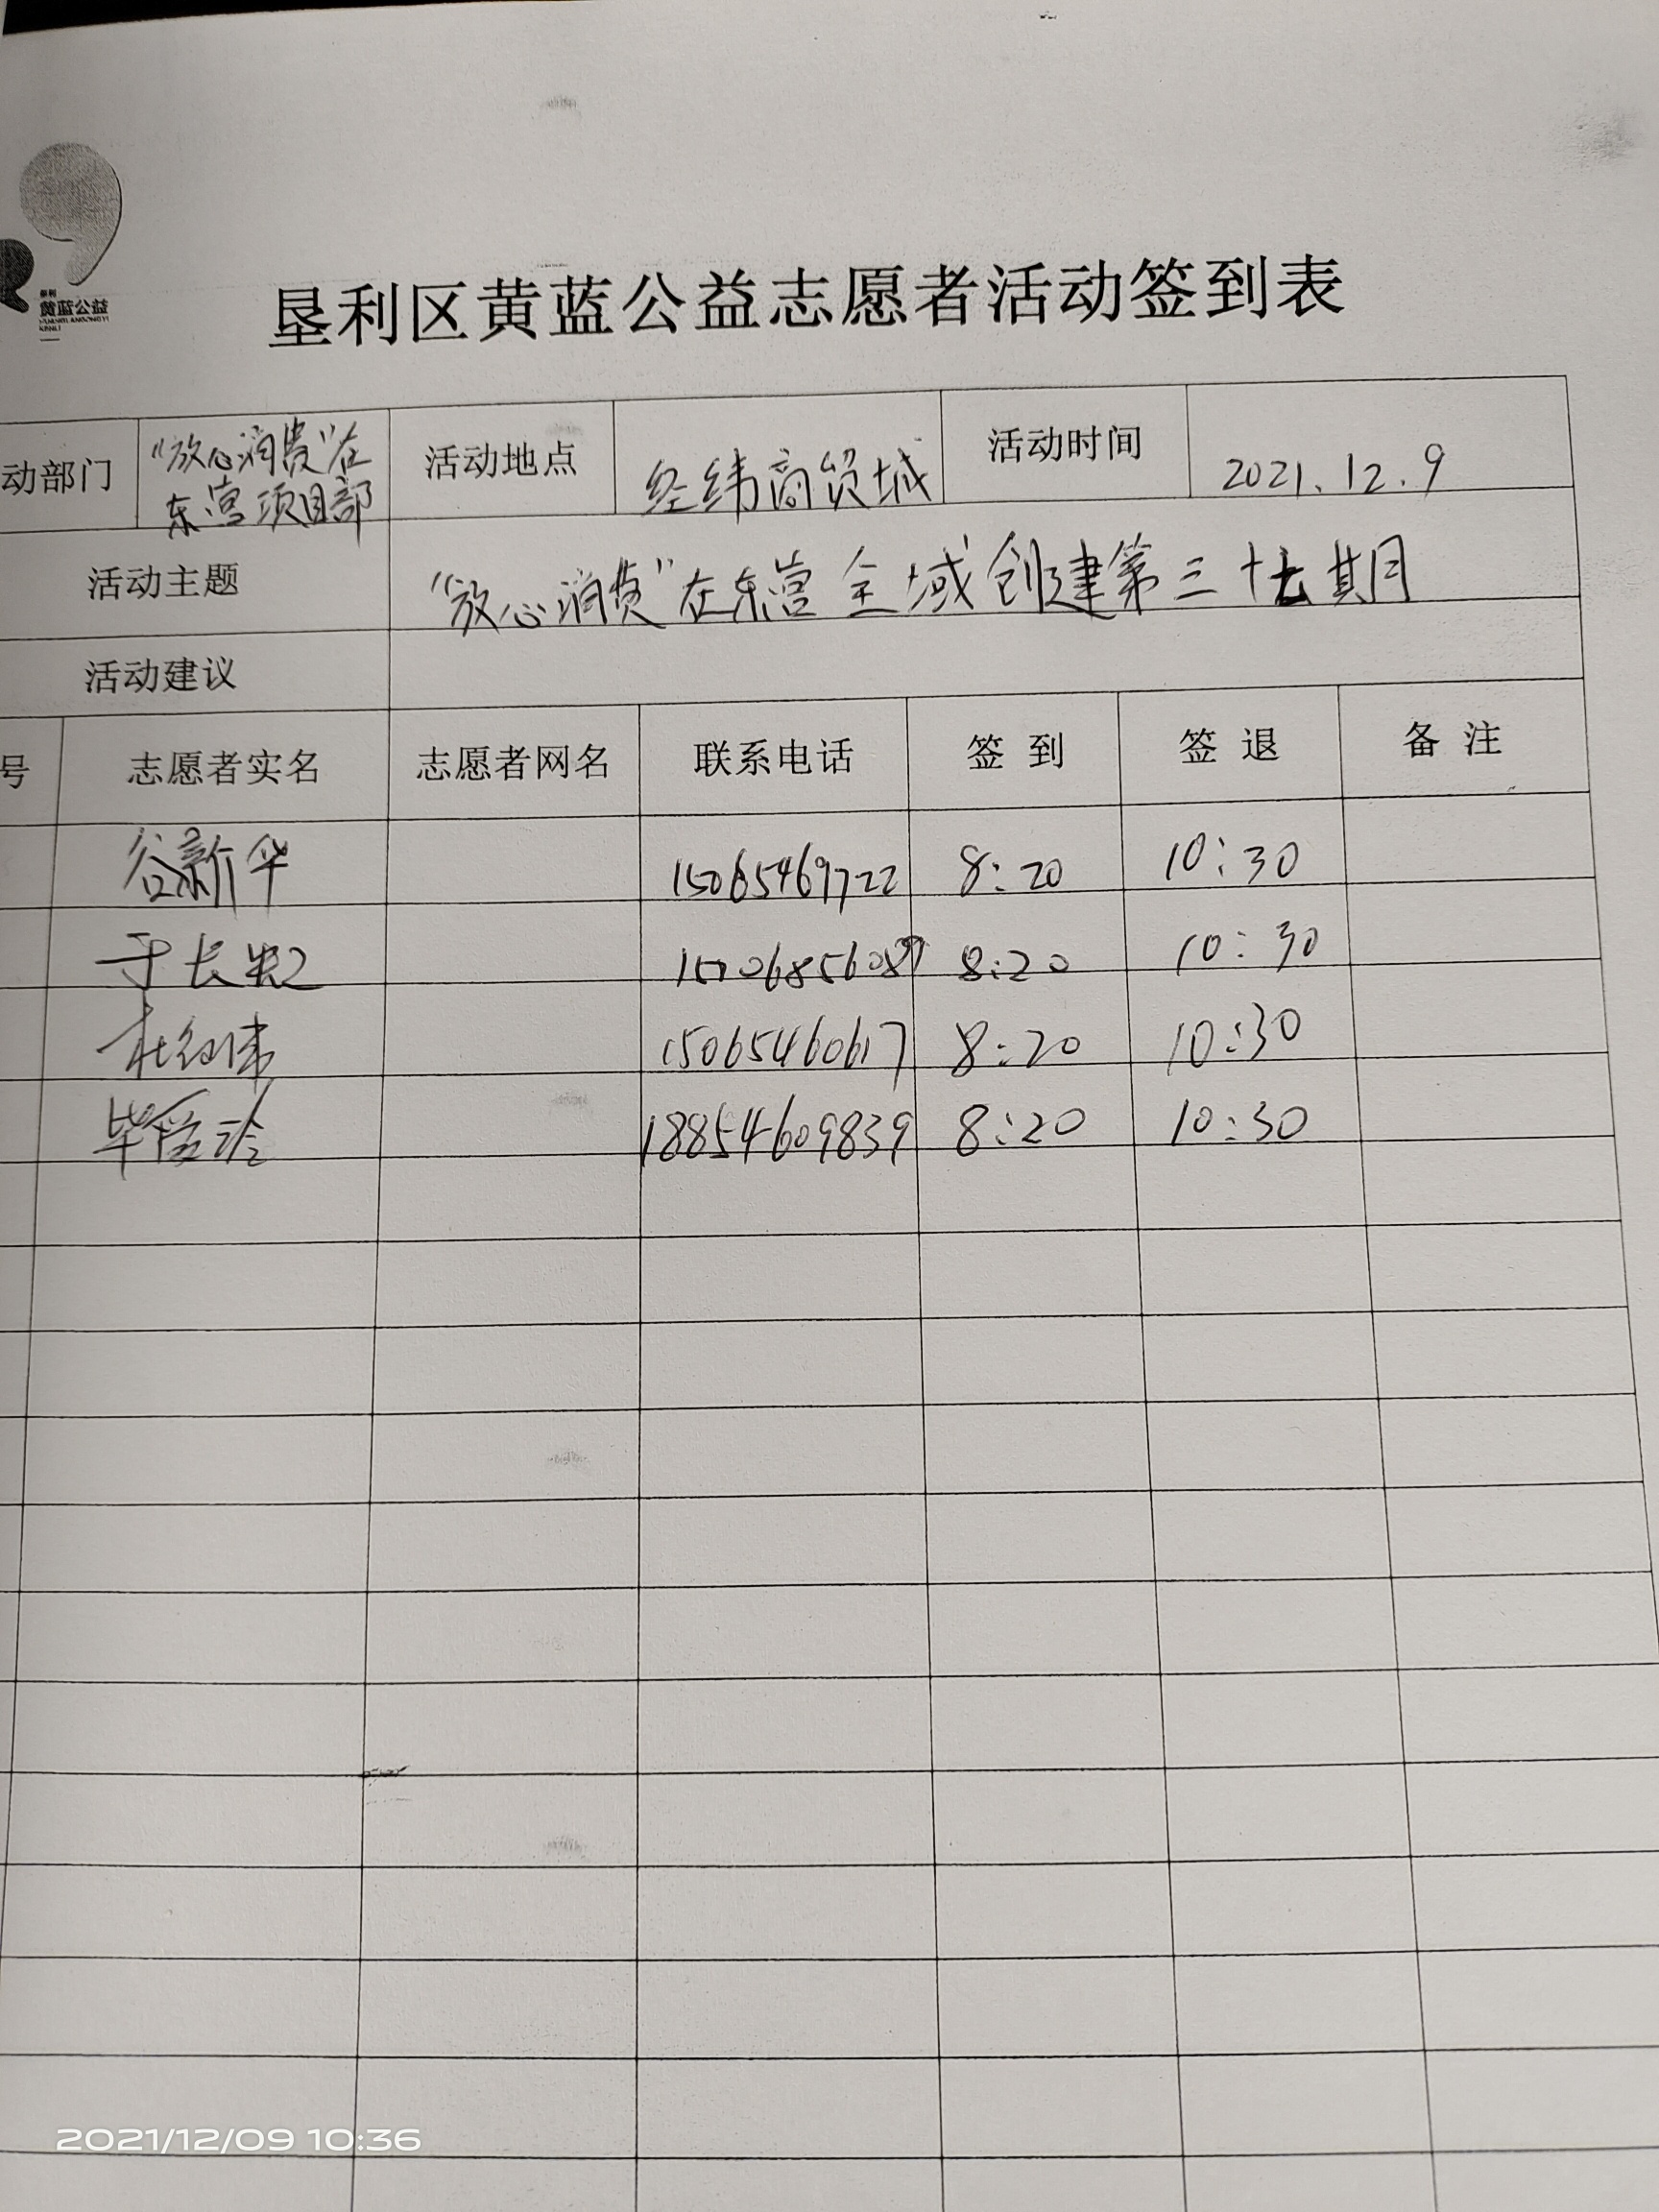 垦利
黄蓝公益
HUANGLANGONGYI
KENLI
垦利区黄蓝公益志愿者活动签到表
动部门 "放心消费"在东营项目部 活动地点 经纬商贸城 活动时间 2021.12.9
活动主题 "放心消费"在东营全域创建第三十五期
活动建议
号 志愿者实名 志愿者网名 联系电话 签到 签退 备注
谷新华 15065469722 8:20 10:30
于长 8:20 10:30
杜 15065460617 8:20 10:30
毕爱玲 18854609839 8:20 10:30
2021/12/09 10:36